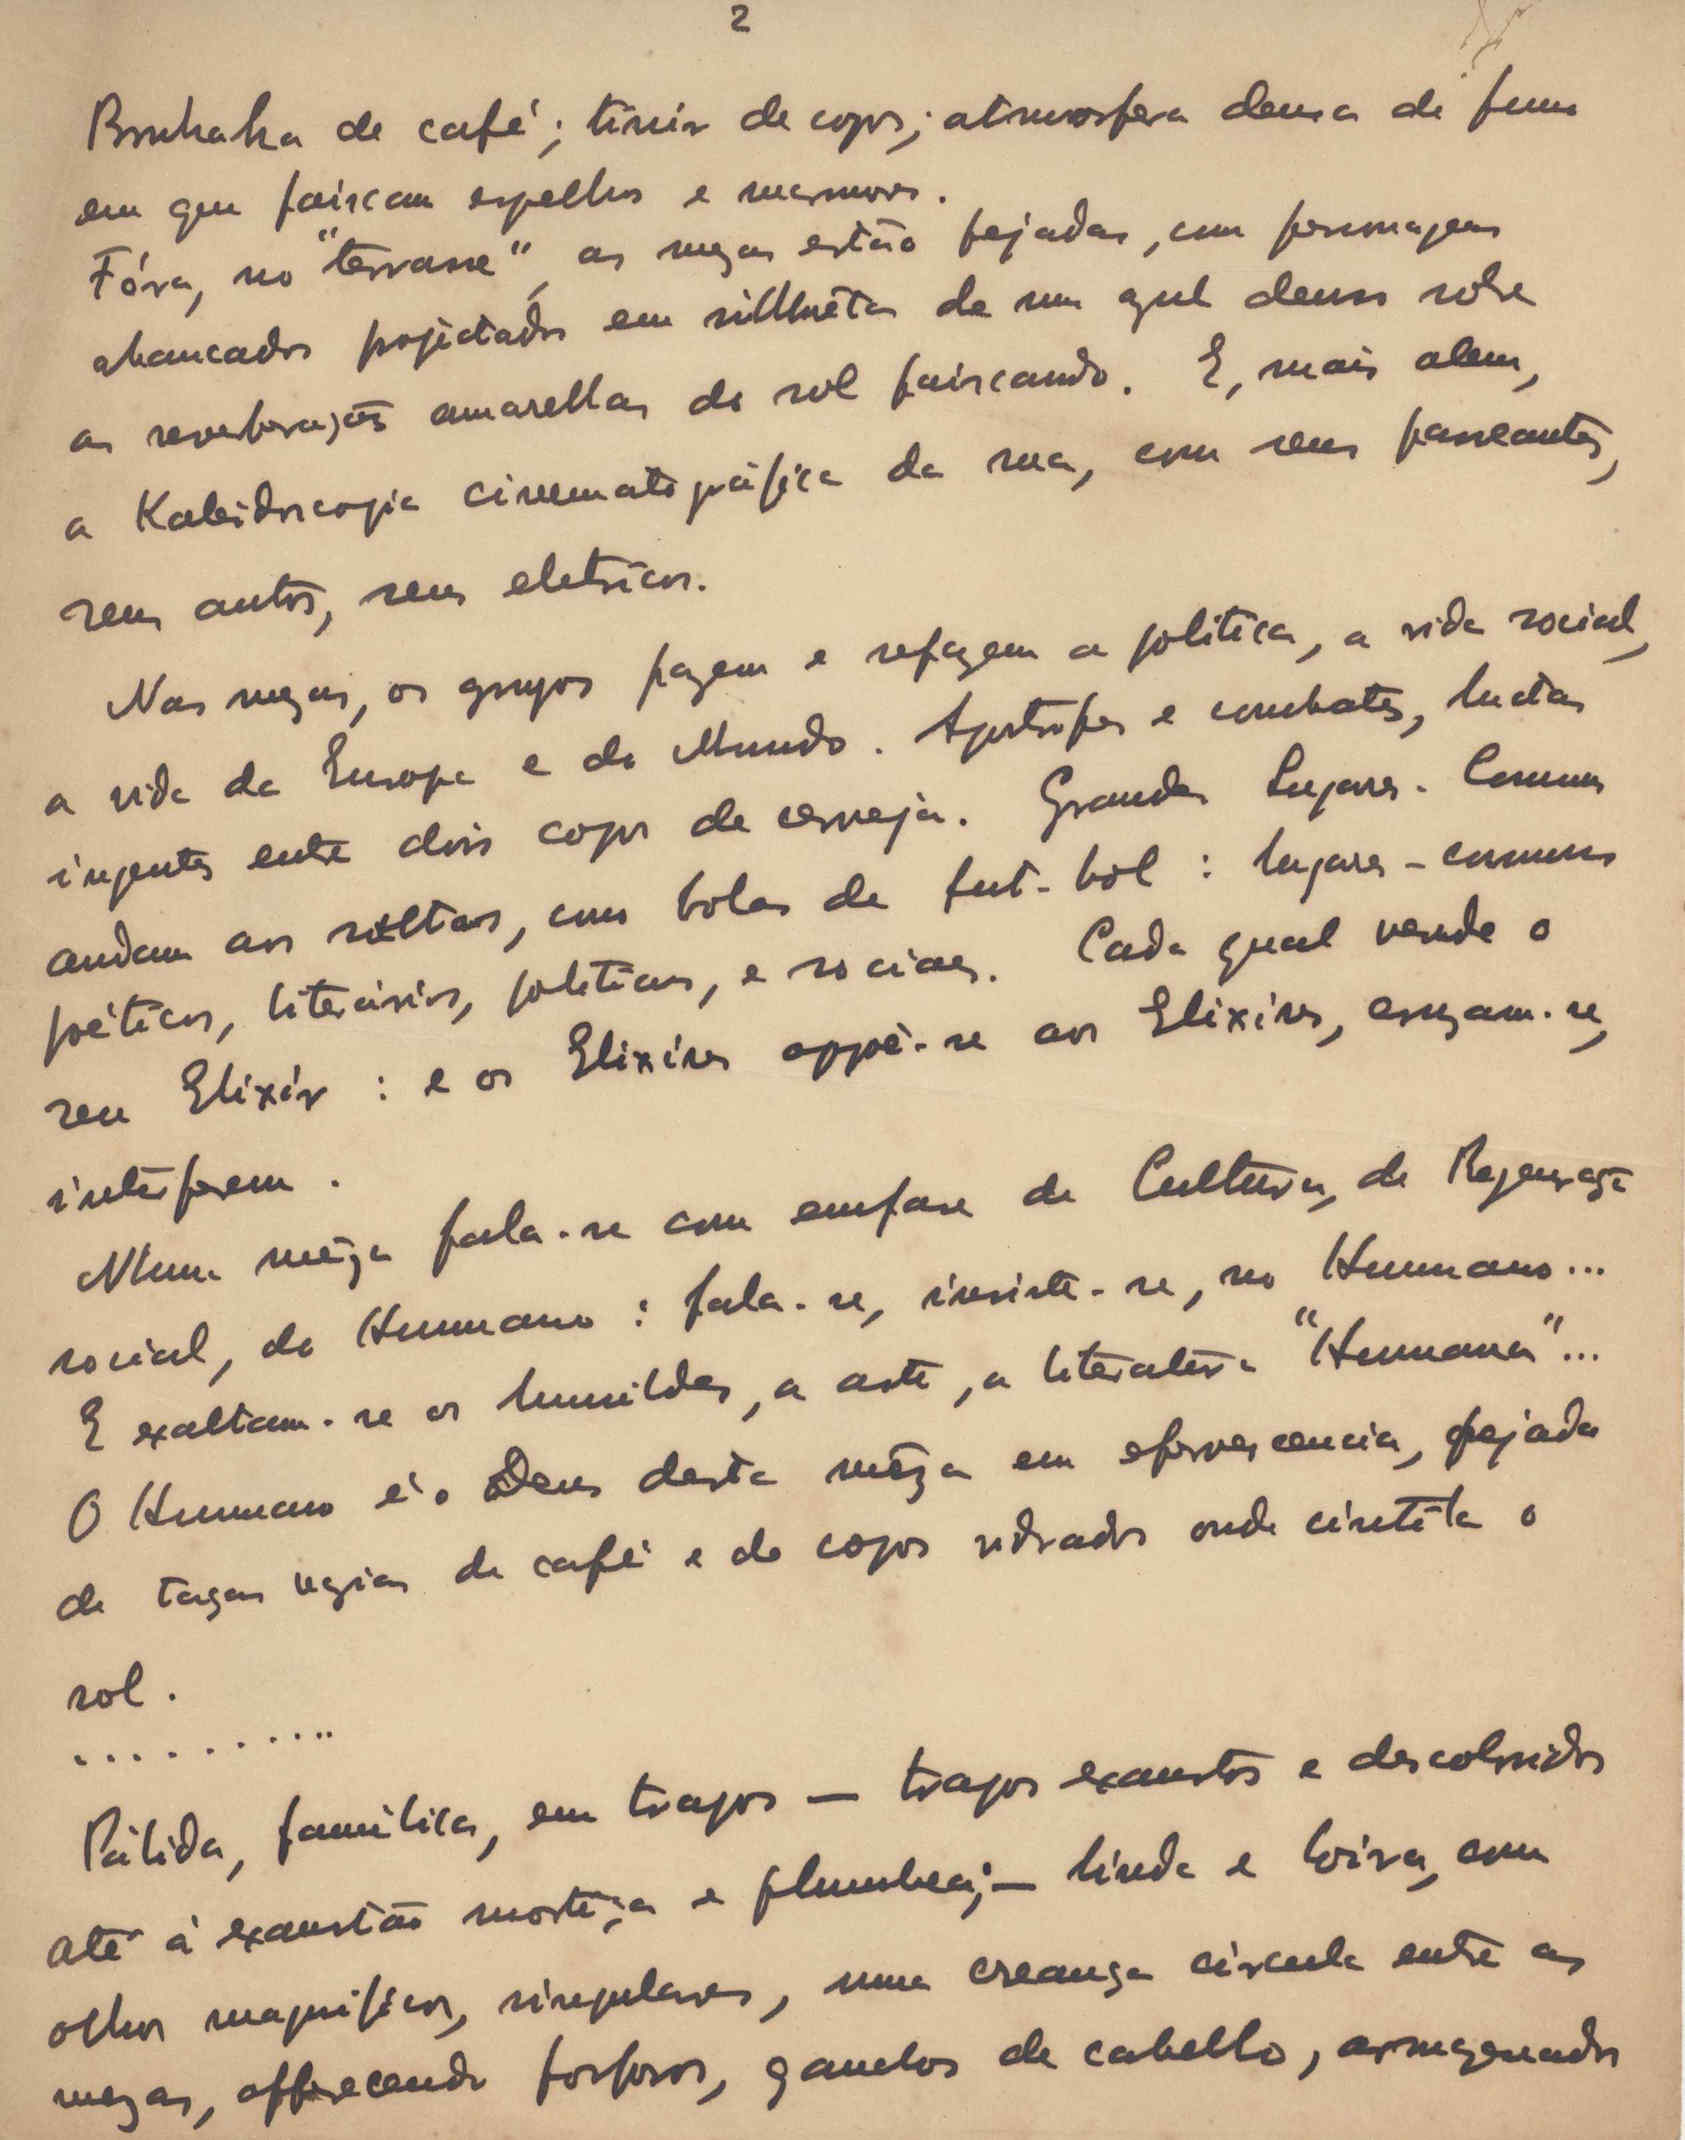 2
Bruhaha de café; tinir de copos; atmosfera densa de fumo
em que faiscam espelhos e marmores.
Fóra, no "terrasse", as mezas estão pejadas, com personagens
abancados projectados em silhuêtas de um azul denso sobre
as reverberações amarellas do sol faiscando. E, mais alem,
a Kaleidoscopia cinematográfica da rua, com seus passeantes,
seus autos, seus eletricos.
Nas mezas, os grupos fazem e refazem a politica, a vida social,
a vida da Europa e do Mundo. Apostrofes e combates, luctas
ingentes entre dois copos de cerveja. Grandes Lugares-Comuns
andam aos saltos, como bolas de fut-bol: lugares-comuns
poéticos, literários, politicos, e sociaes. Cada qual vende o
seu Elixir: e os Elixires oppõe-se aos Elixires, cruzam-se,
interferem.
Numa mêza fala-se com emfase de Cultura, de Regeneração
social, do Humano: fala-se, insiste-se, no Humano...
E exaltam-se os humildes, a arte, a literatura "Humana"...
O Humano é o Deus desta mêza em efervescencia, pejada
de taças vazias de café e de copos vidrados onde cintila o
sol.
..........
Pálida, famélica, em trapos — trapos exaustos e descoloridos
até à exaustão mortiça e plumbea; — linda e loira, com
olhos magnificos, singulares, uma creança circula entre as
mezas, offerecendo fosforos, ganchos de cabello, armazenados